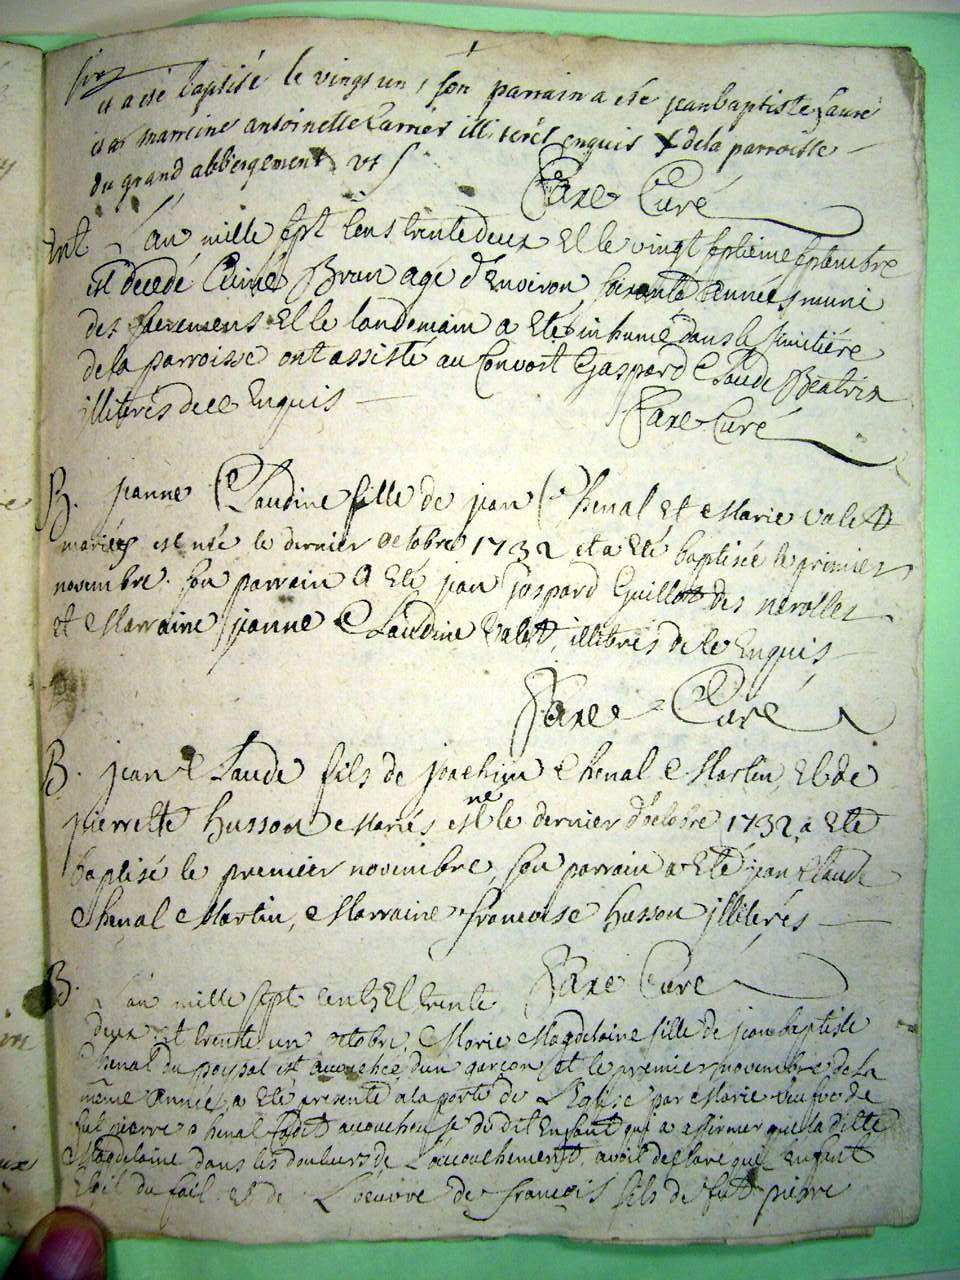 et a été baptisé le vingt un, son parrain a été jean baptiste
et marreine antoinette Carrier illiterés enquis de la parroisse
du grand abbergement
Faxe Curé
Ent L'an mille sept cens trente deux et le vingt septieme septembre
est decedé Aimé Brun agé d'Environ soixante annees muni
des sacremens Et le landemain a eté inhumé dans le simitière
de la parroisse ont assisté au Convoit Gaspard Claude Beatrix
illiterés de ce Enquis
Faxe Curé
B. jeanne Claudine fille de jean Chenal et Marie Valett
mariés est née le dernier octobre 1732 et a eté baptisée le premier
novembre. son parrain a eté jean Gaspard Guillot des nerolles
et Marraine jeanne Claudine Valett, illitrés de le Enquis
Faxe Curé
B. jean Claude fils de joachim Chenal Martin, et de
pierrette husson Mariés est né le dernier d'octobre 1732 a eté
baptisé le premier novembre, son parrain a eté jean Claude
Chenal Martin, Marraine francoise husson illiterés
Faxe Curé
B. L'an mille sept cents et trente
deux et trente un octobre, Marie Magdelaine fille de jean baptiste
Chenal du poysat est accouchée d'un garcon et le premier novembre de la
même année a eté presenté a la porte de L'Eglise par Marie veufve de
fut pierre Chenal accoucheuse du dit Enfant qui a affirmer que la ditte
Magdelaine dans les douleurs de L'accouchement avoit declaré que enfant
etoit du fait et de L'oeuvre de francois fils de fut pierre